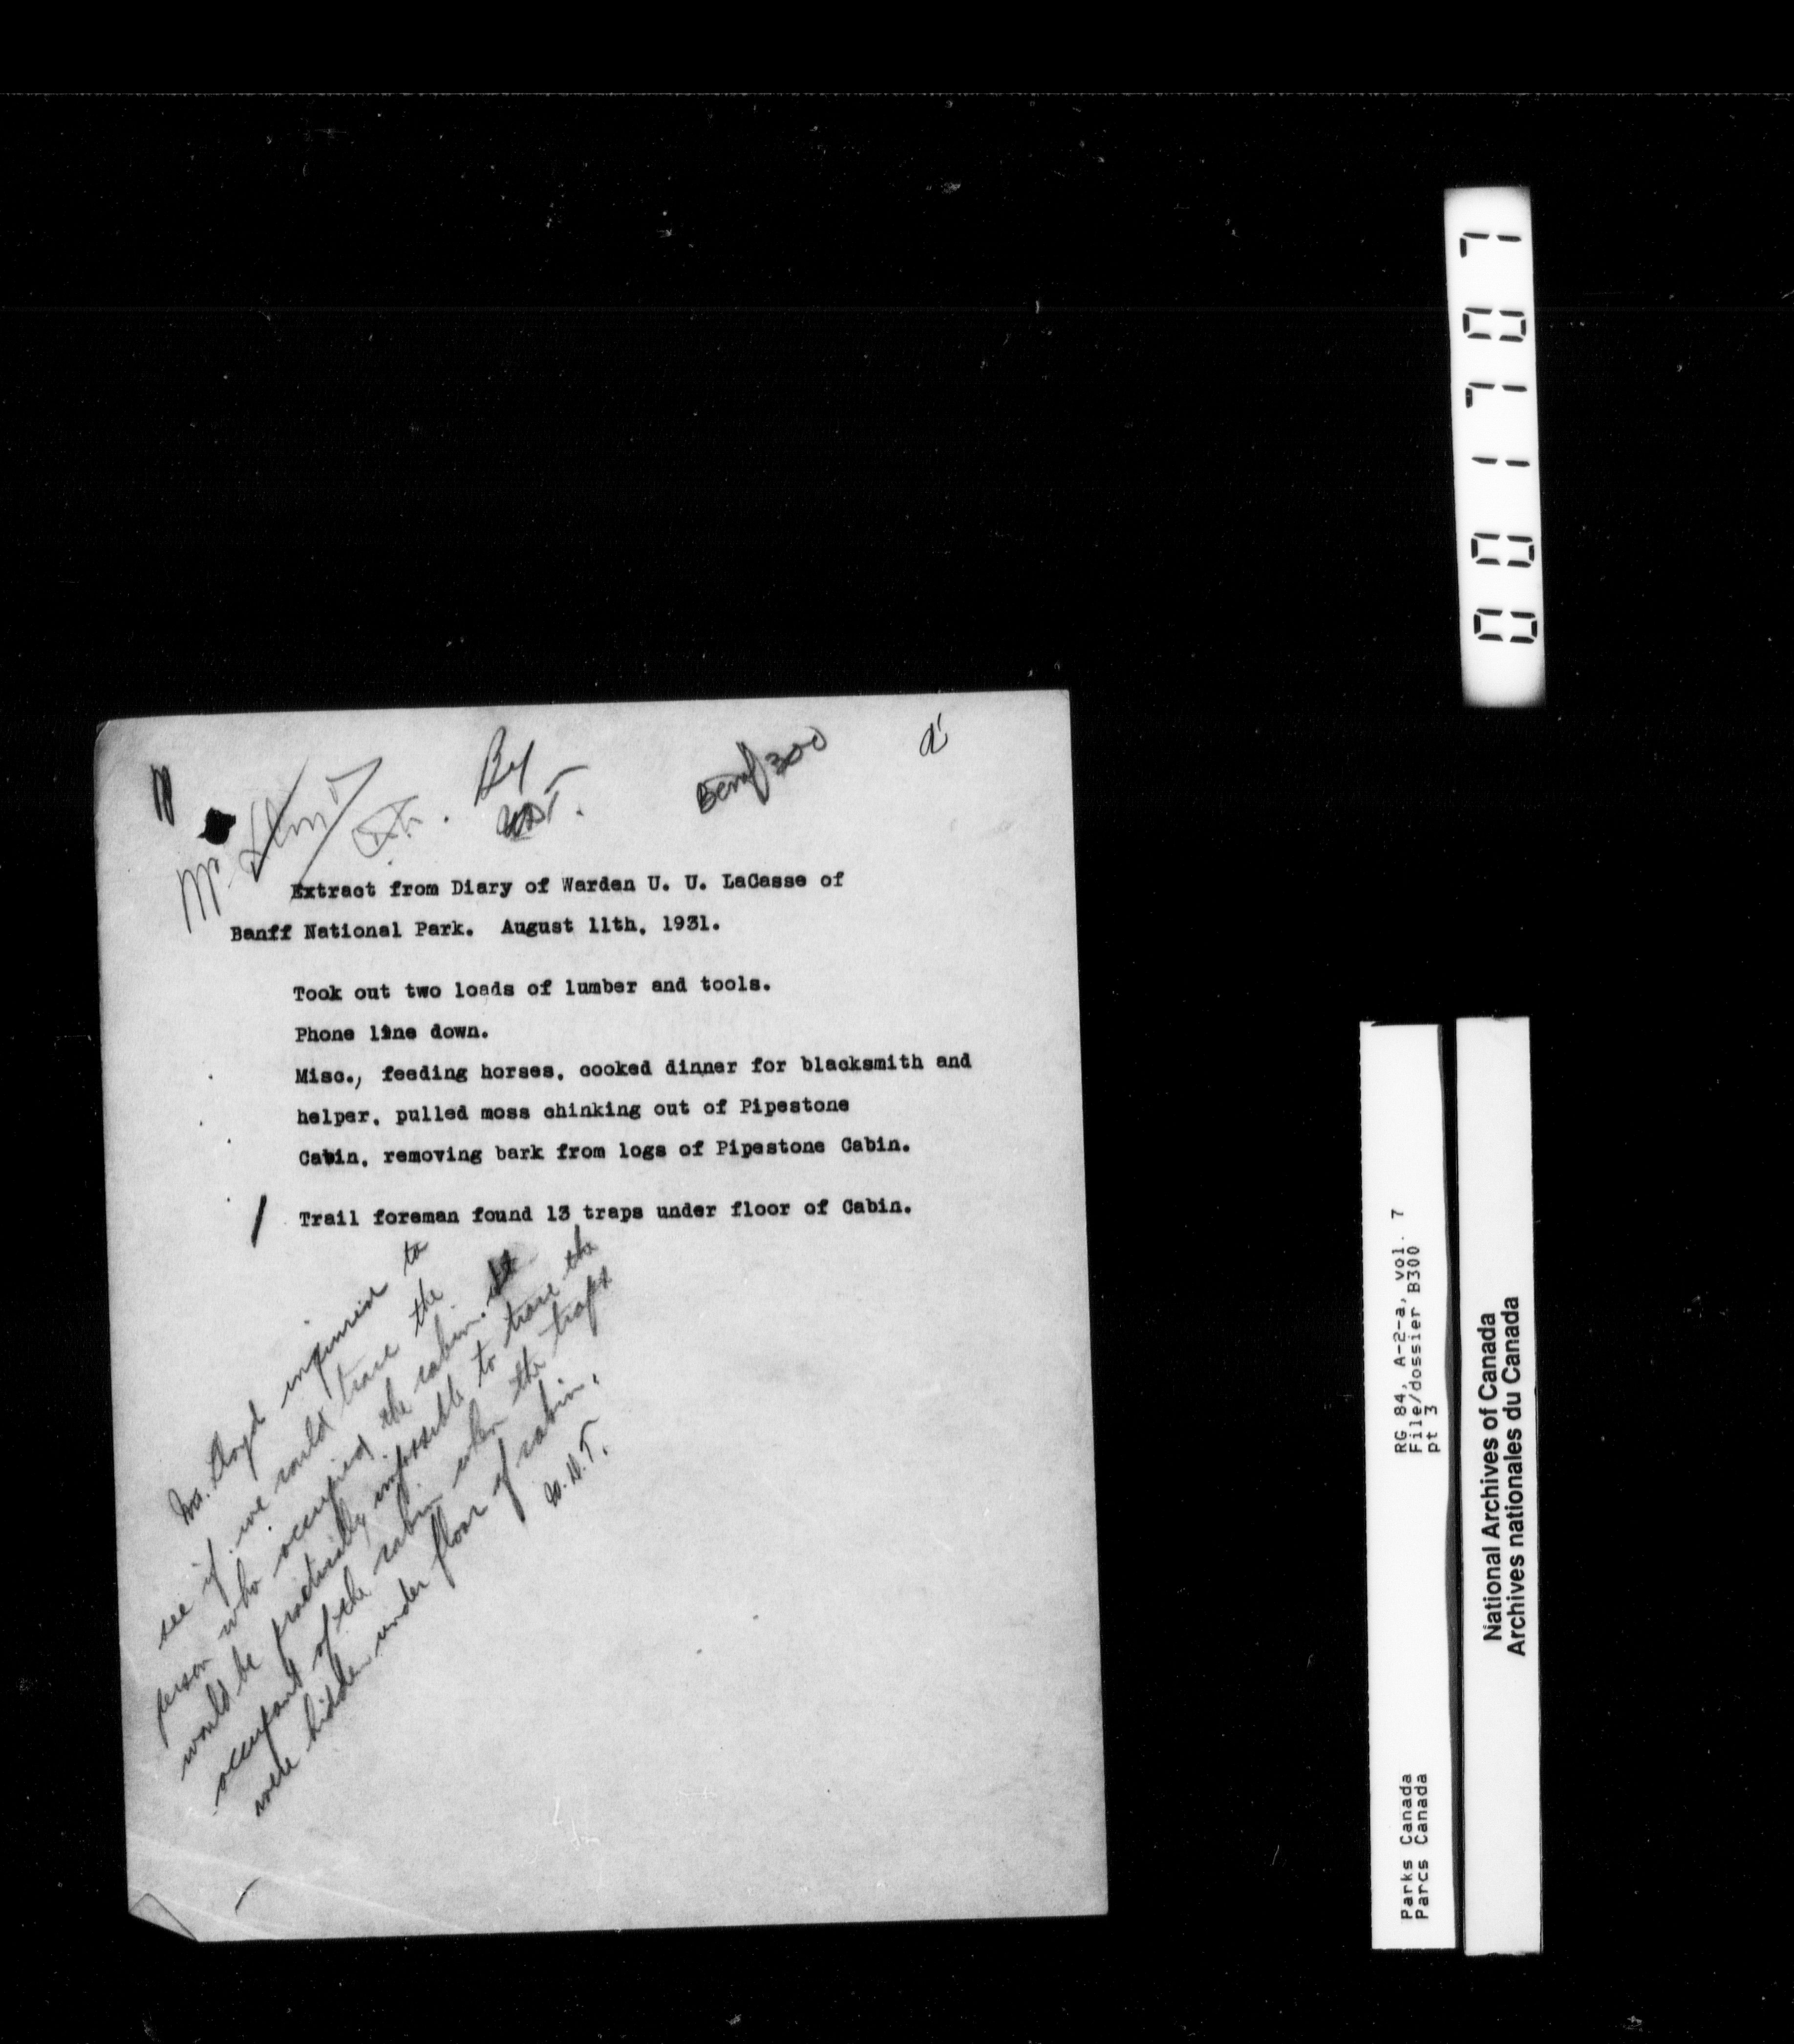 By
W.D.T.
300
Mr
Extract from Diary of Warden U. U. LaCasse of
Banff National Park. August 11th, 1931.
Took out two loads of lumber and tools.
Phone line down.
Misc., feeding horses, cooked dinner for blacksmith and
helper, pulled moss chinking out of Pipestone
Cabin, removing bark from logs of Pipestone Cabin.
Trail foreman found 13 traps under floor of Cabin.
Mr. Lloyd inquired to
see if we could trace the
person who occupied the cabin. It
would be practically impossible to trace the
occupant of the cabin when the traps
were hidden under floor of cabin.
W.D.T.
001707
RG 84, A-2-a, vol. 7
File/dossier B300
pt 3
Parks Canada
Parcs Canada
National Archives of Canada
Archives nationales du Canada